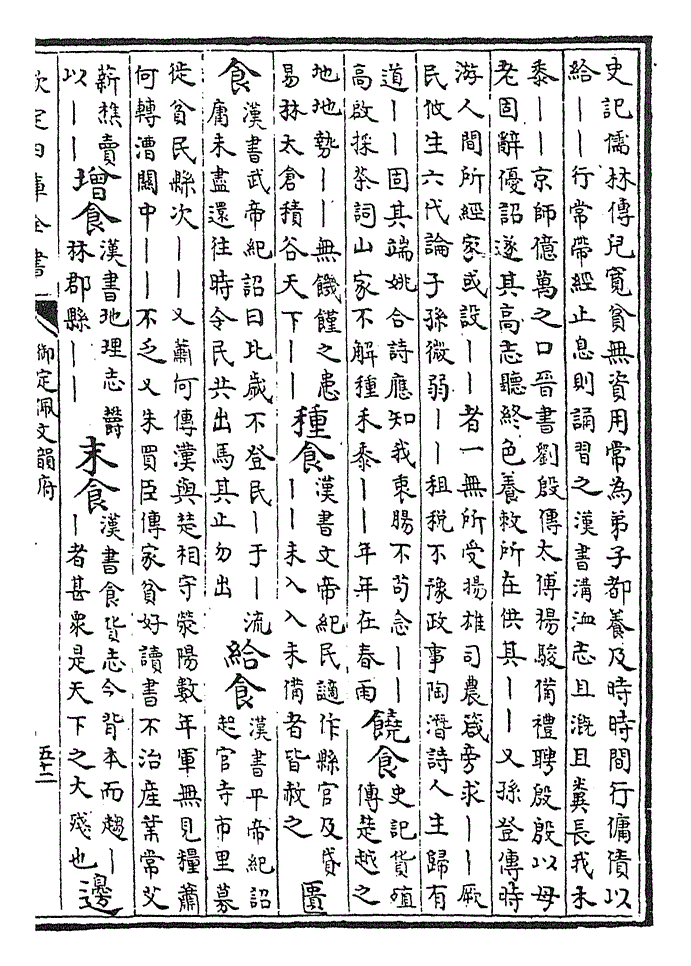 史記儒林傳兒寛貧無資用常為弟子都養及時時間行傭債以
給丨丨行常帶經止息則誦習之漢書溝洫志且漑且糞長我禾
黍丨丨京師億萬之口晉書劉殷傳太傅揚駿備禮聘殷殷以母
老固辭優詔遂其高志聽終色養敕所在供其丨丨又孫登傳時
游人間所經家或設丨丨者一無所受揚雄司農箴旁求丨丨厥
民攸生六代論子孫微弱丨丨租税不豫政事陶潛詩人主歸有
道丨丨固其端姚合詩應知我衷腸不苟念丨丨
高啟採茶詞山家不解種禾黍丨丨年年在春雨
饒食
史記貨殖
傳楚越之
地地勢丨丨無饑饉之患
易林太倉積谷天下丨丨
種食
漢書文帝紀民讁作縣官及貸
丨丨未入入未備者皆赦之
匱
食
漢書武帝紀詔曰比歲不登民丨于丨流
庸未盡還往時令民共出馬其止勿出
給食
漢書平帝紀詔
起官寺市里募
徙貧民縣次丨丨又蕭何傳漢與楚相守滎陽數年軍無見糧蕭
何轉漕關中丨丨不乏又朱買臣傳家貧好讀書不治産業常艾
薪樵賣
以丨丨
增食
漢書地理志欝
林郡縣丨丨
末食
漢書食貨志今背本而趨丨
丨者甚衆是天下之大殘也
邊
欽定四庫全書
御定佩文韻府
五十二